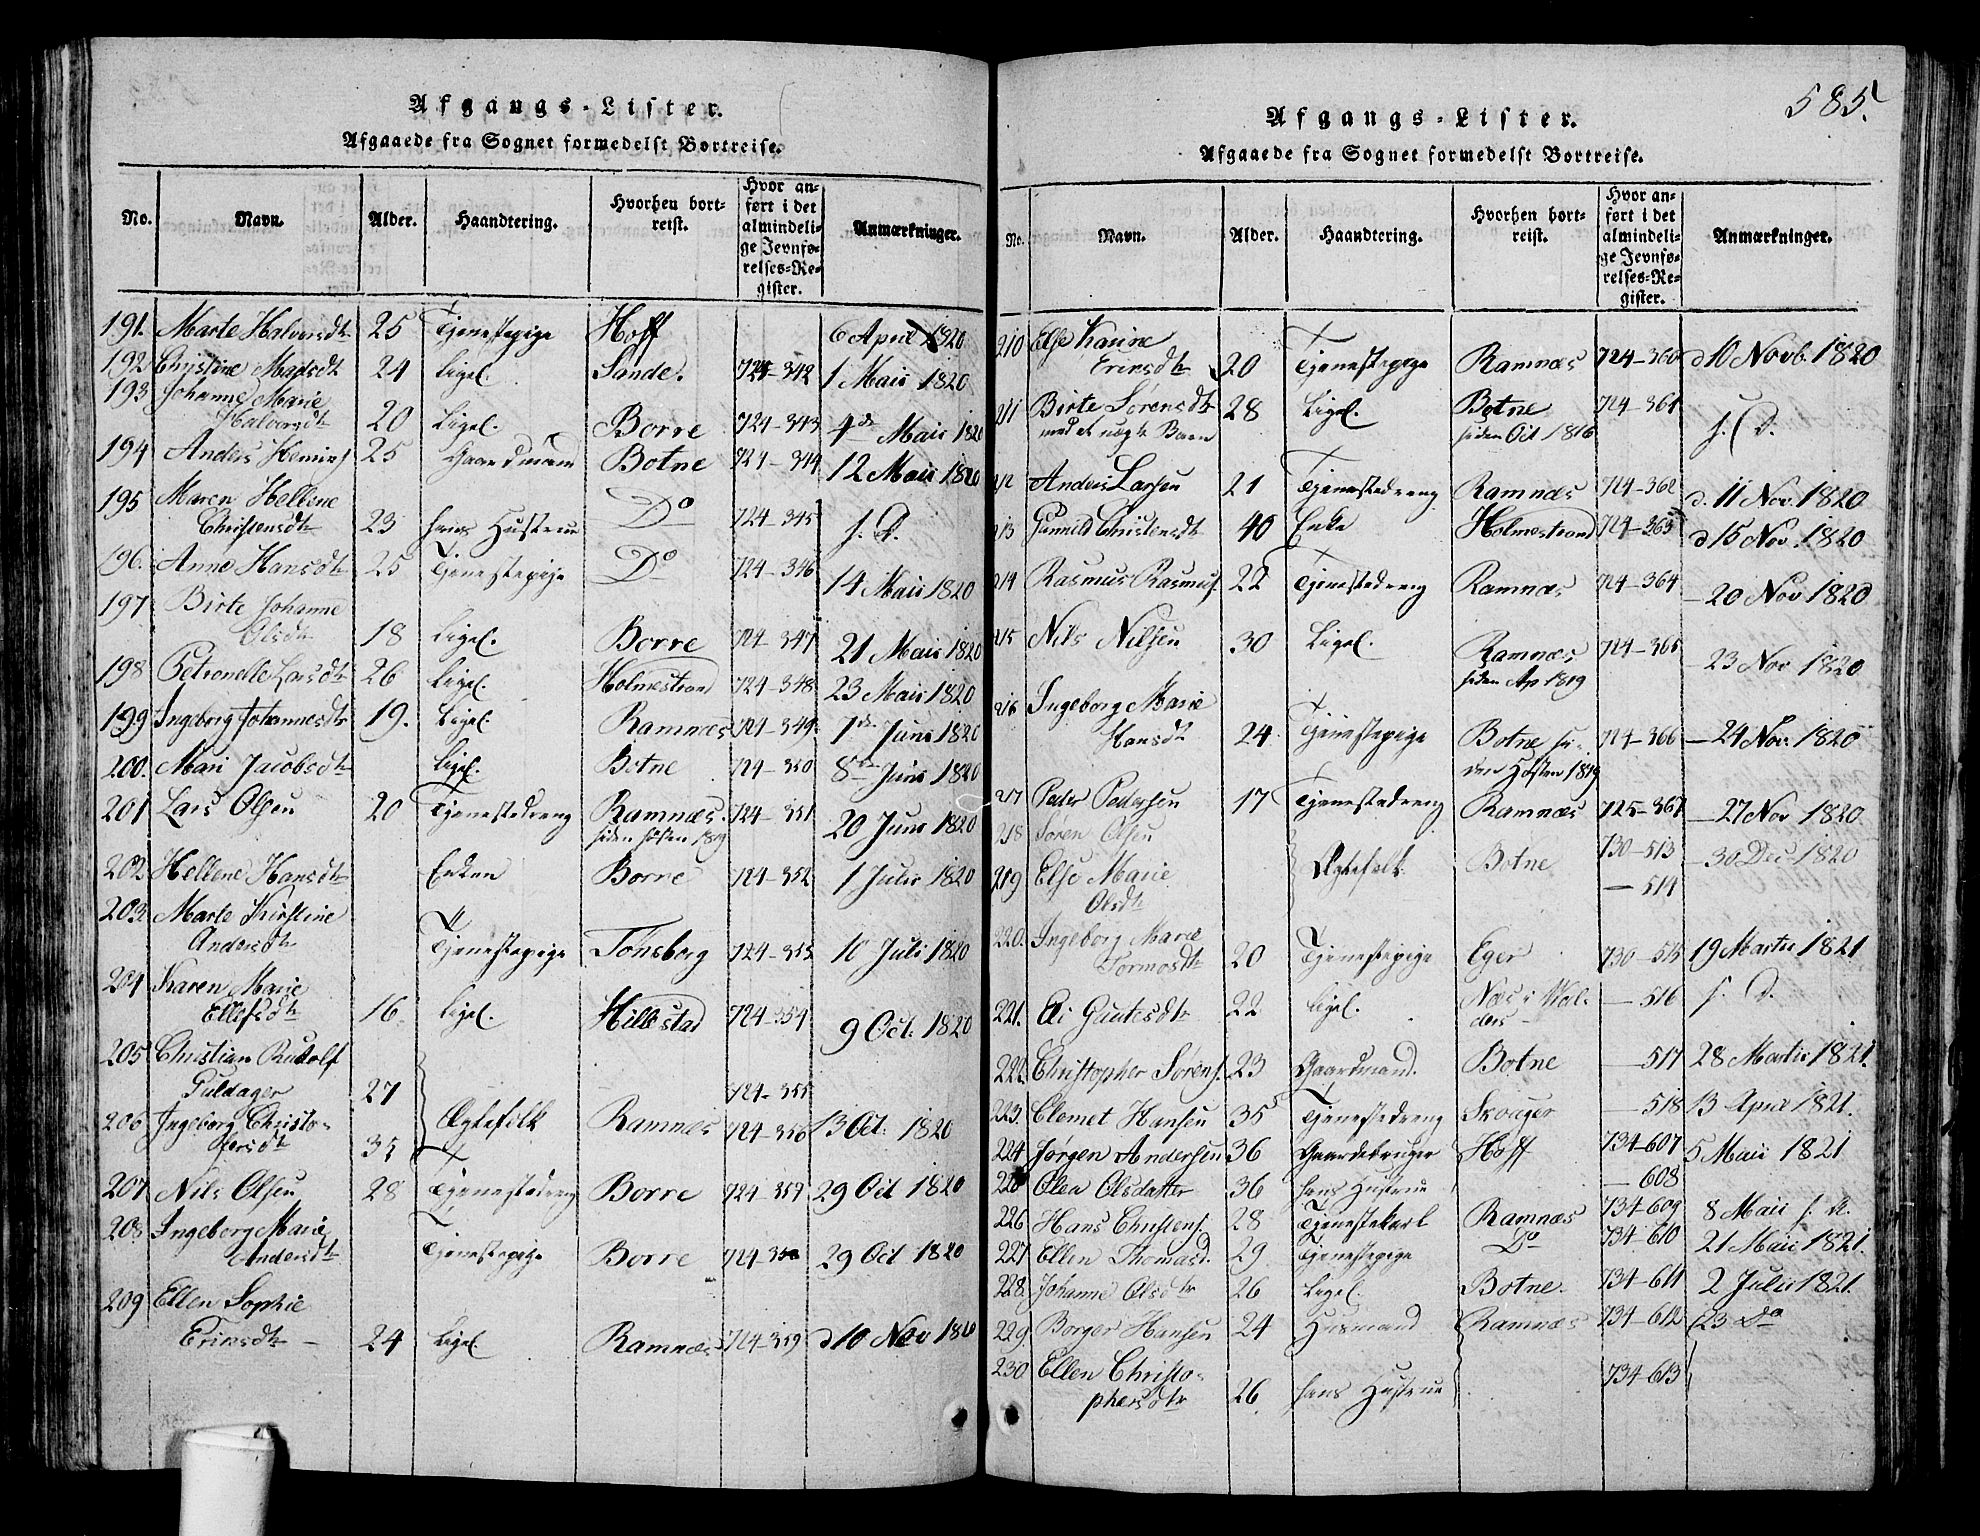 Afgangs-Lister.
Afgaaede fra Sognet formedelst Bortreise.
No. Navn. Alder. Haandtering. Hvorhen bortreist. Hvor anført i det almindelige Jevnførelses-Register. Anmærkninger.
191. Marte Halvorsdtr 25 Tjenestepige Hoff 6 April 1820
192 Christine Madsdtr 24 Ligel. Sande. 724-342 1 Maii 1820
193 Johanne Marie
Halvorsdtr 20 Ligel. Borre 724-343 4de Maii 1820
194 Anders 25 Gaardmand Botne 724-344 12 Maii 1820
195 Maren Hellene
Christensdtr 23 hans Hustrue Do 724-345 s. D.
196. Anne Hansdtr 25 Tjenestepige Do 724-346 14 Maii 1820
197 Birte Johanne
Olsdtr 18 Ligel. Borre 724-347 21 Maii 1820
198 Petronelle Larsdtr 26 Ligel. Holmestrand 724-348 23 Maii 1820
199 Ingeborg Johannesdtr 19. Ligel. Ramnæs 724-349 1de Juni 1820
200. Mari Jacobsdtr Ligel. Botne 724-350 8de Juni 1820
201 Lars Olsen 20 Tjenestedreng Ramnæs 724-351 20 Juni 1820
siden Høsten 1819
202 Hellene Hansdtr Enken Borre 724-352 1 Julii 1820
203. Marte Kirstine
Andersdtr Tjenestepige Tönsberg 724-353 10 Juli 1820
204 Karen Marie
Ellefsdtr 16. Ligel. Hillestad 724-354 9 Oct: 1820
205 Christian Rudolf
Fuldager 27 724-355
206 Ingeborg Christo-
fersdtr 35 Ægtefolk Ramnæs 724-356 13 Oct: 1820
207 Nils Olsen 28 Tjenestedreng Borre 724-357 29 Oct 1820
208 Ingeborg Marie
Andersdtr Tjenestepige Borre 724-358 29 Oct 1820
209 Ellen Sophie
Erinsdtr 24 Ligel. Ramnæs 724-359 d10 Nov 1820
585.
Afgangs-Lister.
Afgaaede fra Sognet formedelst Bortreise.
No. Navn. Alder. Haandtering. Hvorhen bortreist. Hvor anført i det almindelige Jevnførelses-Register. Anmærkninger.
210 Else Karine
Erinsdtr 20 Tjenestepige Ramnæs 724-360 d10 Novb. 1820
211 Birte Sørensdtr 28 Ligel. Botne 724-361 s. D.
med et uægte Barn siden Oct 1816
212 Anders Larsen 21 Tjenestedreng Ramnæs 724-362 d. 11 Nov. 1820
213 Gunild Christensdtr 40 Enke Holmestrand 724-363 d15 Nov. 1820
214 Rasmus Rasmus. 22 Tjenestedreng Ramnæs 724-364 - 20 Nov 1820
215 Nils Nilsen 30 Ligel. Ramnæs 724-365 - 23 Nov 1820
siden Ap 1819
216 Ingeborg Marie
Hansdtr 24 Tjenestepige Botne si- 724-366 - 24 Nov. 1820
den Høsten 1819
217 Peder Pedersen 17 Tjenestedreng Ramnæs 725-367 - 27 Nov 1820
218 Søren Olsen 730-513 - 30 Dec 1820
219 Else Marie Ægtefolk Botne - 514
Olsdtr
220. Ingeborg Marie
Tormosdtr 20 Tjenestepige Eger 730-515 19 Martii 1821
221. Eli Guutesdtr 22 Ligel. Næs i Wal- - 516 s. D.
ders
222. Christopher Sørens. 23 Gaardmand. Botne - 517 28 Martii 1821
223. Clemet Hansen 35 Tjenestedreng Skouger - 518 13 April 1821.
224 Jørgen Andersen 36 Gaardebruger Hoff 734-607 5 Maii 1821
225 Olea Olsdatter 36 hans Hustrue - 608
226 Hans Christens. 28 Tjenestekarl Ramnæs 734-609 8 Maii s. A.
227 Ellen Thomasd. 29 Tjenestepige Do 734-610 21 Maii 1821.
228. Johanne Olsdtr 26 Ligel. Botne. 734-611 2 Julii 1821.
229. Borger Hansen 24 Husmand Ramnæs 734-612 23 do
230 Ellen Christo-
phersdtr 26 hans Hustrue 734-613